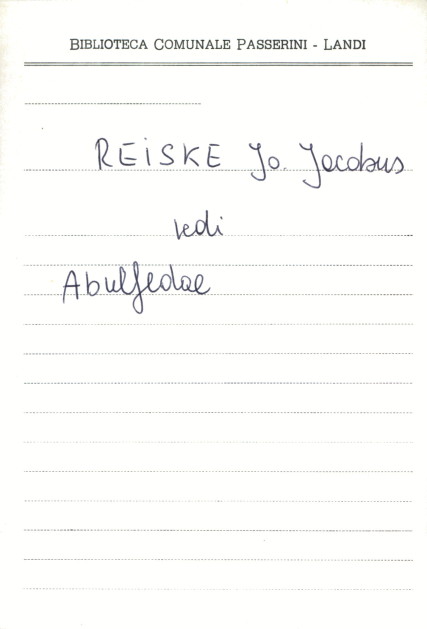 BIBLIOTECA COMUNALE PASSERINI - LANDI
REISKE Jo. Jacobus
vedi
Abulfedae